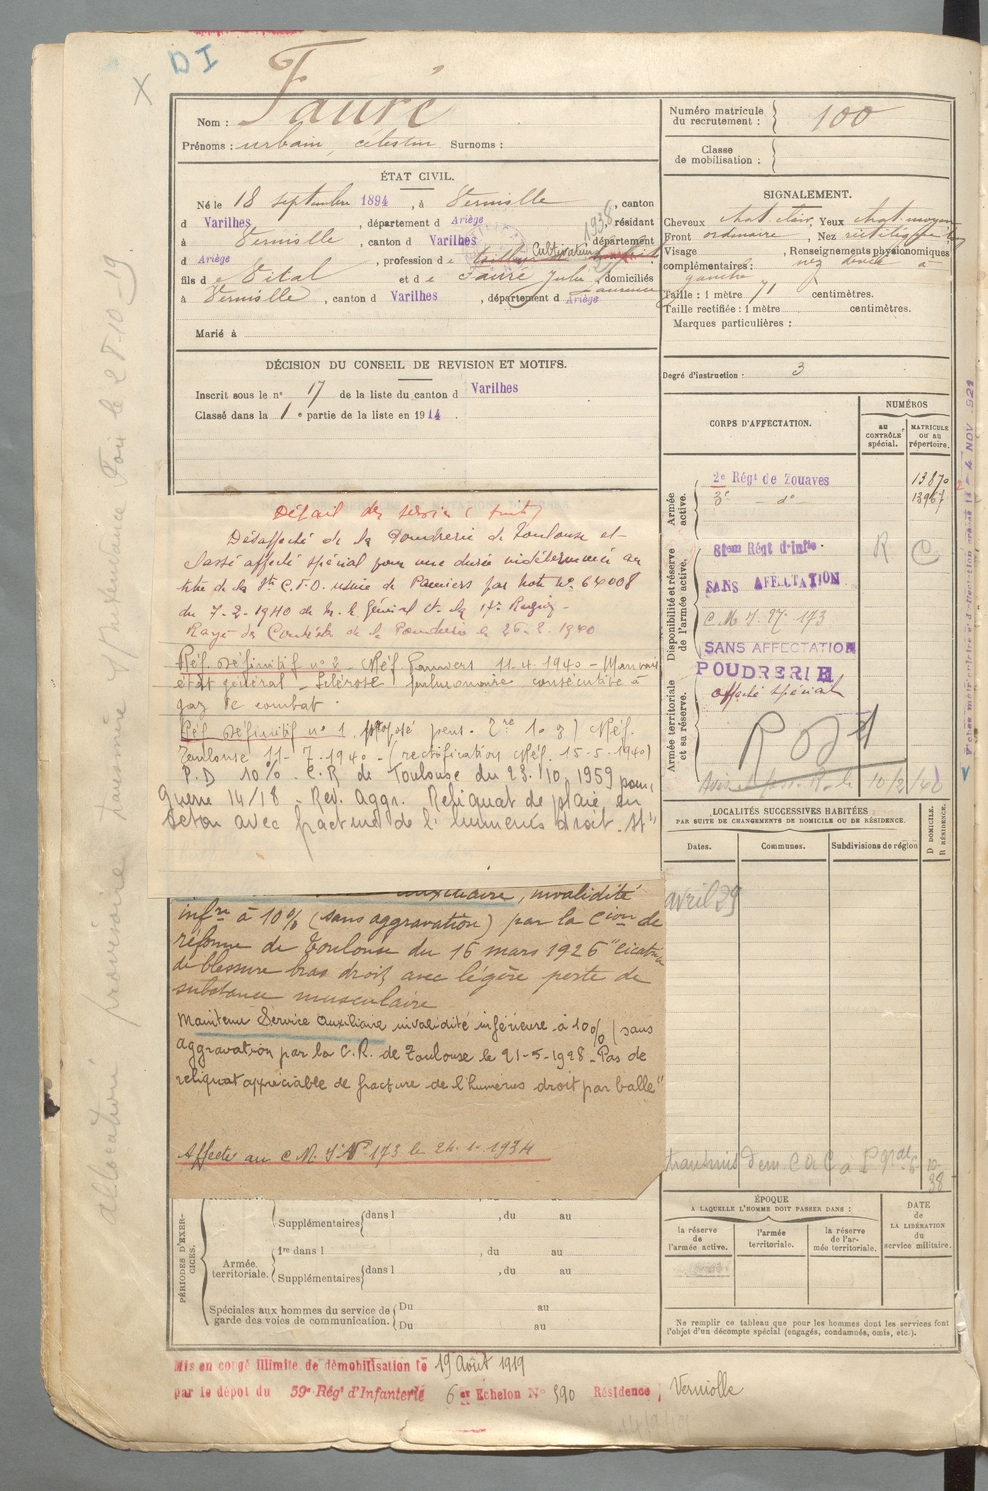 DI
X
Nom : Fauré
Prénoms : urbain, célestin Surnoms :
ÉTAT CIVIL.
Né le 18 septembre 1894, à Verniolle, canton
d Varilhes, département d Ariège, résidant
à Verniolle, canton d Varilhes, département
d Ariège, profession de Cultivateur 1938
fils de Vital et de Fauré Julie Laurence, domiciliés
à Verniolle, canton d Varilhes, département d Ariège
Marié à
DÉCISION DU CONSEIL DE REVISION ET MOTIFS.
Inscrit sous le n° 17 de la liste du canton d Varilhes
Classé dans la 1 e partie de la liste en 1914.
Détail des services (suite)
Désaffecté de la Poudrerie de Toulouse et
classé affecté spécial pour une durée indéterminée au
titre de la usine de Pamiers par note n° 64008
du 7-2-1940 de M. le Général Ct la 17e Région
Rayé des Contrôles de la Poudrerie le 26-2-1940
Réf. Définitif n° 2 - Réf. Pamiers 11-4-1940 - Mauvais
état général - Sclérose pulmonaire consécutive à
gaz de combat.
Réf. Définitif n° 1, proposé pens. Réf.
Toulouse 11-7-1940 - (rectification Réf. 15-5-1940)
P.D 10% - C.R de Toulouse du 23/10/1959 pour
Guerre 14/18 - Rev. Aggr. Reliquat de plaie en
séton avec fracture de l'humérus droit.
auxiliaire, invalidité
infre à 10% (sans aggravation) par la Cion de
réforme de Toulouse du 16 mars 1926 "cicatrice
de blessure bras droit avec légère perte de
substance musculaire
Maintenu Service Auxiliaire invalidité inférieure à 10% (sans
aggravation par la C.R. de Toulouse le 21-5-1928 - Pas de
reliquat appréciable de fracture de l'humérus droit par balle"
Affecté au C.M. I N° 173 le 24-1-1934
PÉRIODES D'EXERCICES.
Supplémentaires dans l , du au
Armée territoriale.
1re dans l , du au
Supplémentaires dans l , du au
Spéciales aux hommes du service de garde des voies de communication.
Du au
Du au
Mis en congé illimité de démobilisation le 19 Août 1919
par le dépôt du 59e Régt d'Infanterie 6 er Echelon N° 390 Résidence : Verniolle
Numéro matricule du recrutement : 100
Classe de mobilisation :
SIGNALEMENT.
Cheveux chat. clair, Yeux chat. moyen
Front ordinaire, Nez rectiligne
Visage , Renseignements physionomiques
complémentaires : nez dévié à
gauche
Taille : 1 mètre 71 centimètres.
Taille rectifiée : 1 mètre centimètres.
Marques particulières :
Degré d'instruction : 3
CORPS D'AFFECTATION.
NUMÉROS
au CONTRÔLE spécial.
MATRICULE ou au répertoire.
Armée active.
2e Régt de Zouaves 13870
3e - d° 13967
Disponibilité et réserve de l'armée active.
81eme Régt d'Infie. R C
SANS AFFECTATION
C M I. 27. 173
SANS AFFECTATION
POUDRERIE
affecté spécial
Armée territoriale et sa réserve.
10/2/40
LOCALITÉS SUCCESSIVES HABITÉES
PAR SUITE DE CHANGEMENTS DE DOMICILE OU DE RÉSIDENCE.
Dates.
Communes.
Subdivisions de région
D DOMICILE.
R RÉSIDENCE.
avril 29
transmis dem C a C a
10-38
ÉPOQUE
A LAQUELLE L'HOMME DOIT PASSER DANS :
la réserve de l'armée active.
l'armée territoriale.
la réserve de l'armée territoriale.
DATE de LA LIBÉRATION du service militaire.
Ne remplir ce tableau que pour les hommes dont les services font
l'objet d'un décompte spécial (engagés, condamnés, omis, etc.).
allocation provisoire
28-10-19
4 NOV. 921